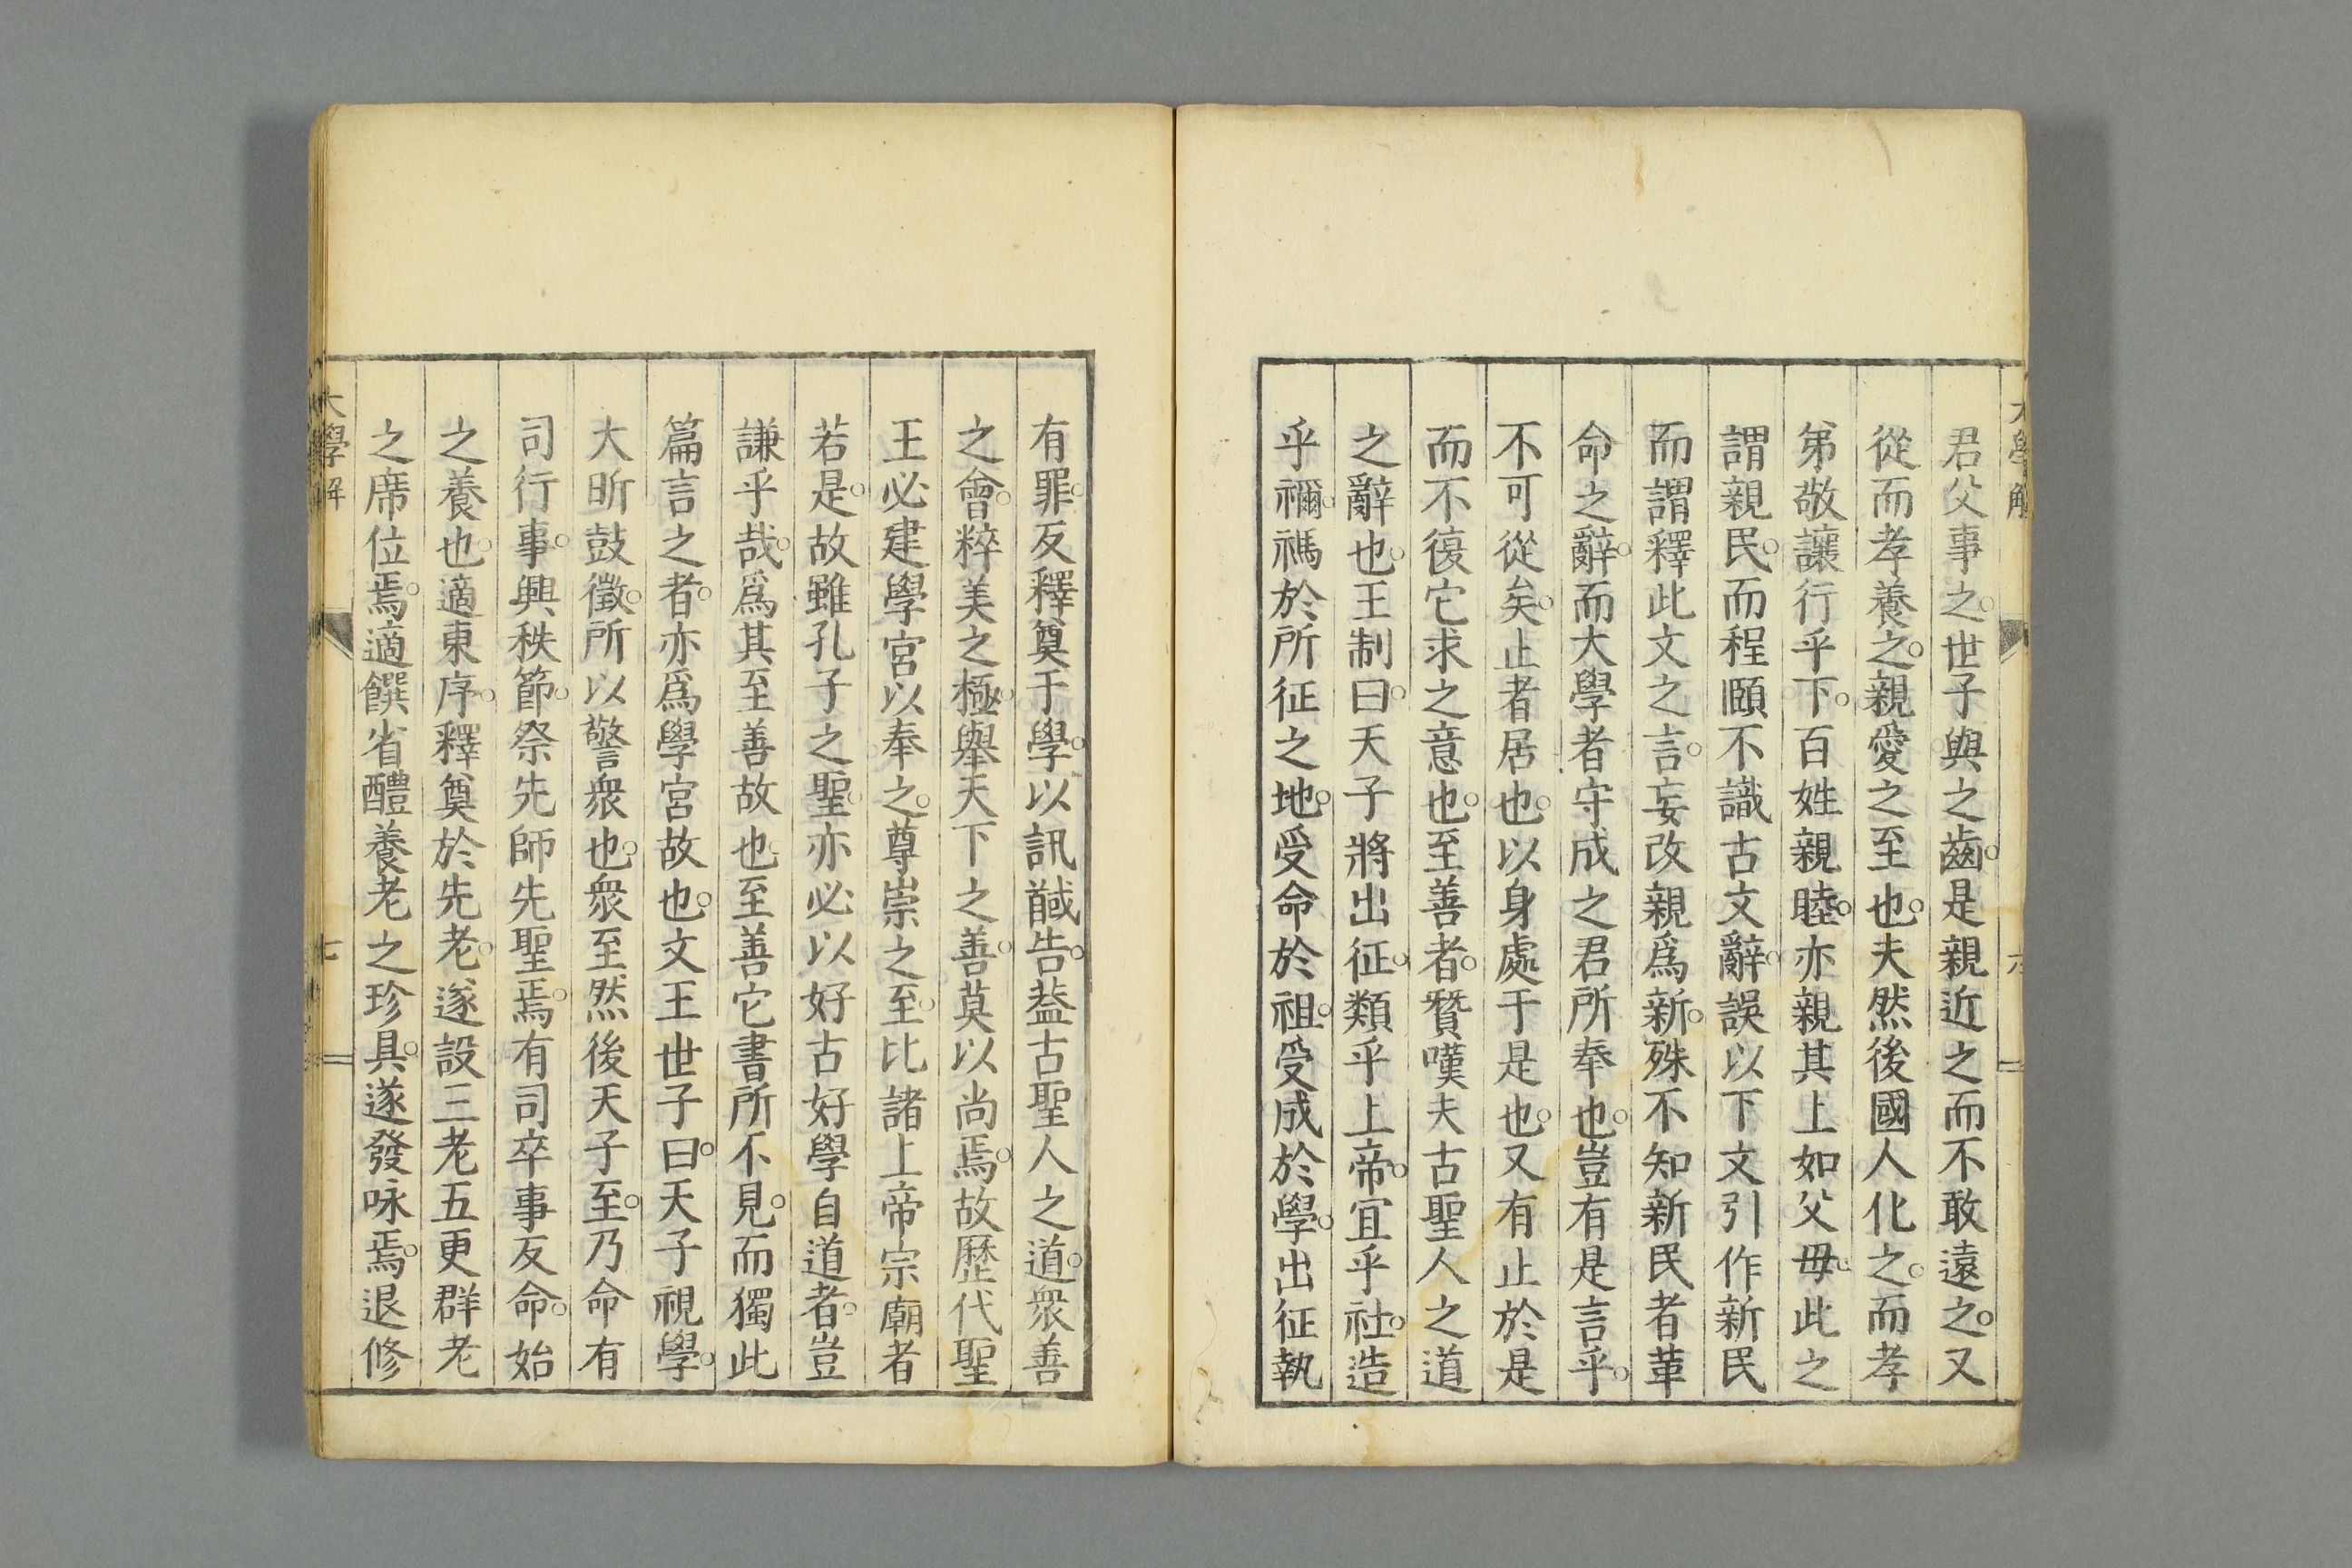 君父事之。世子與之齒。是親近之而不敢遠之。又
從而孝養之。親愛之至也。夫然後國人化之。而孝
弟敬讓行乎下。百姓親睦。亦親其上如父母。此之
謂親民。而程頤不識古文辭。誤以下文引作新民
而謂釋此文之言。妄改親爲新。殊不知新民者革
命之辭。而大學者守成之君所奉也。豈有是言乎。
不可從矣。止者居也。以身處于是也。又有止於是
而不復它求之意也。至善者。贊嘆夫古聖人之道
之辭也。王制曰。天子將出征。類乎上帝。宜乎社。造
乎禰。禡於所征之地。受命於祖。受成於學。出征執
有罪。反釋奠于學。以訊馘告。葢古聖人之道。衆善
之會。粹美之極。舉天下之善。莫以尚焉。故歷代聖
王必建學宮以奉之。尊崇之至。比諸上帝宗廟者
若是。故雖孔子之聖。亦必以好古好學自道者。豈
謙乎哉。爲其至善故也。至善它書所不見。而獨此
篇言之者。亦爲學宮故也。文王世子曰。天子視學。
大昕鼓徵。所以警衆也。衆至然後天子至。乃命有
司行事。興秩節。祭先師先聖焉。有司卒事反命。始
之養也。適東序。釋奠於先老。遂設三老五更群老
之席位焉。適饌省醴養老之珍具。遂發咏焉。退修
大學解
七